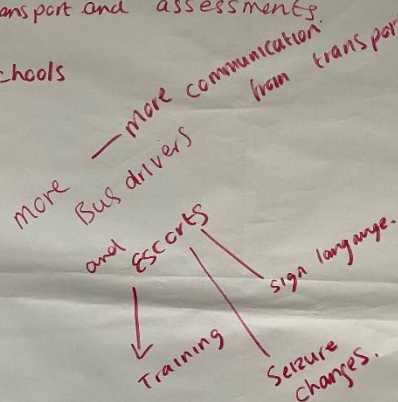 ansport and assessments.
chools
more communication
from transport
more
Bus drivers
and Escorts
sign langange.
Training
Seizure
changes.